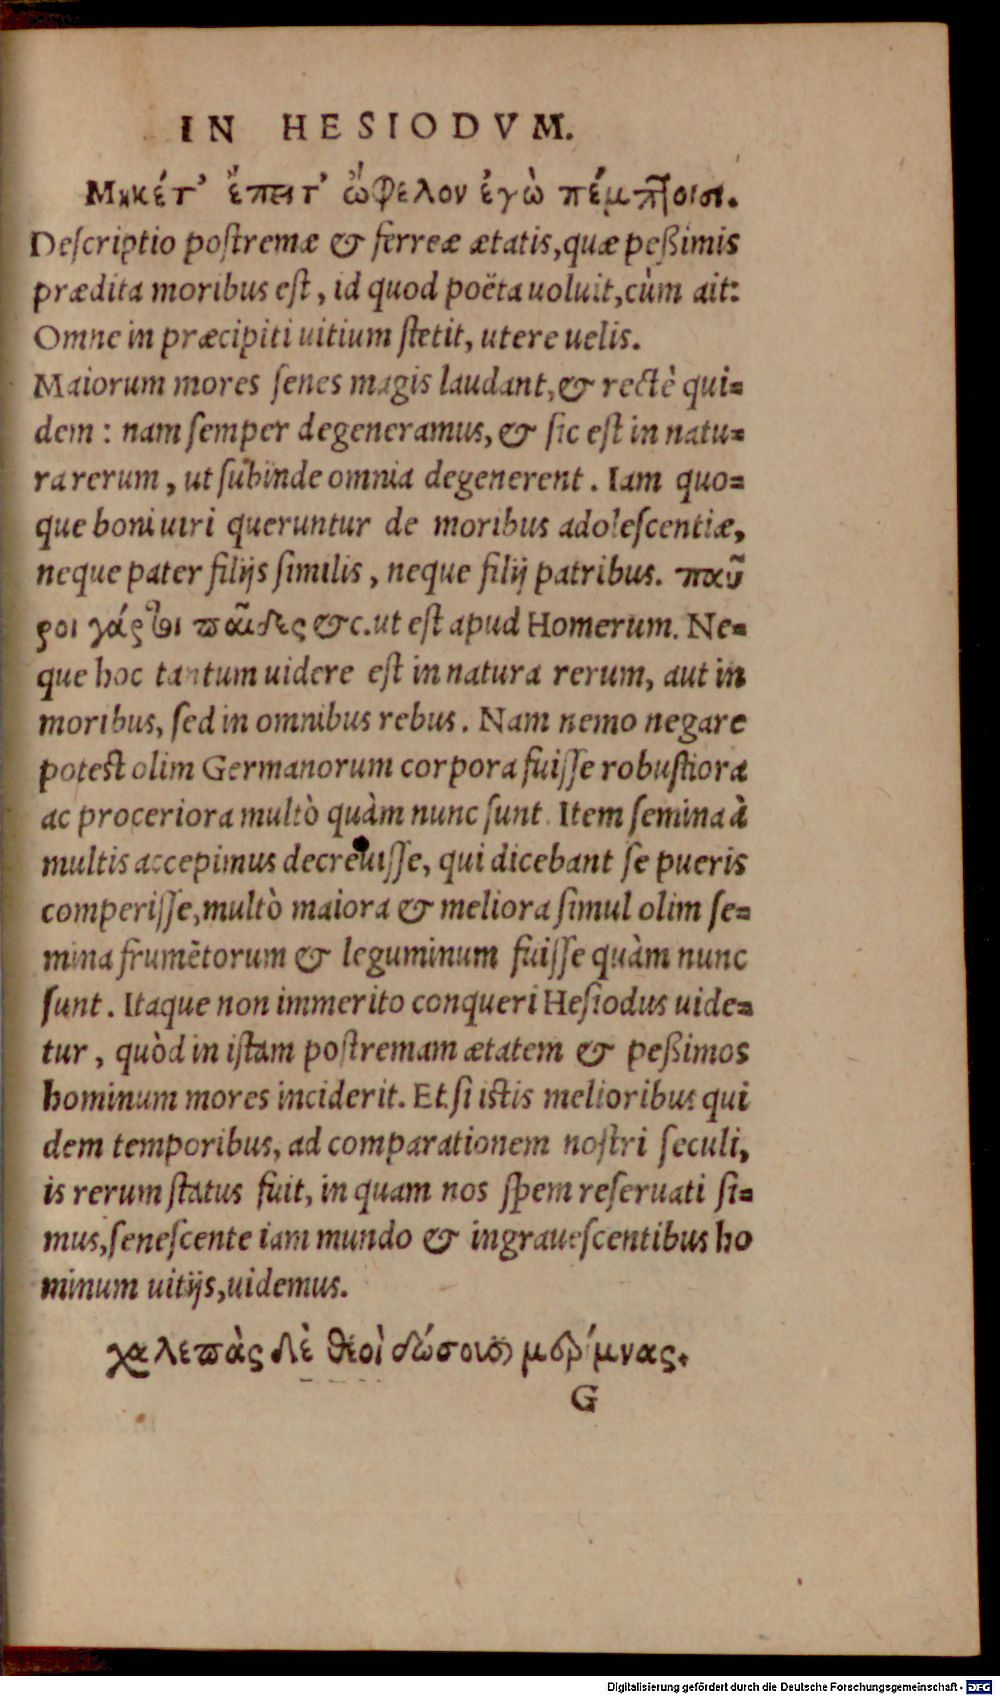 IN HESIODVM.
Μηκέτ' ἔπειτ' ὤφελον ἐγὼ πέμπτοισι.
Descriptio postremæ & ferreæ ætatis, quæ peßimis
prædita moribus est, id quod poëta uoluit, cùm ait:
Omne in præcipiti uitium stetit, utere uelis.
Maiorum mores senes magis laudant, & rectè qui=
dem : nam semper degeneramus, & sic est in natu=
ra rerum, ut subinde omnia degenerent. Iam quo=
que boni uiri queruntur de moribus adolescentiæ,
neque pater filijs similis, neque filij patribus. παῦ
ροι γάρ τοι παῖδες &c. ut est apud Homerum. Ne=
que hoc tantum uidere est in natura rerum, aut in
moribus, sed in omnibus rebus. Nam nemo negare
potest olim Germanorum corpora fuisse robustiora
ac proceriora multò quàm nunc sunt. Item semina à
multis accepimus decreuisse, qui dicebant se pueris
comperisse, multò maiora & meliora simul olim se=
mina frumētorum & leguminum fuisse quàm nunc
sunt. Itaque non immerito conqueri Hesiodus uide=
tur, quòd in istam postremam ætatem & peßimos
hominum mores inciderit. Et si istis melioribus qui
dem temporibus, ad comparationem nostri seculi,
is rerum status fuit, in quam nos spem reseruati si=
mus, senescente iam mundo & ingrauescentibus ho
minum uitijs, uidemus.
χαλεπὰς δὲ θεοὶ δώσουσι μερίμνας.
G
Digitalisierung gefördert durch die Deutsche Forschungsgemeinschaft - DFG